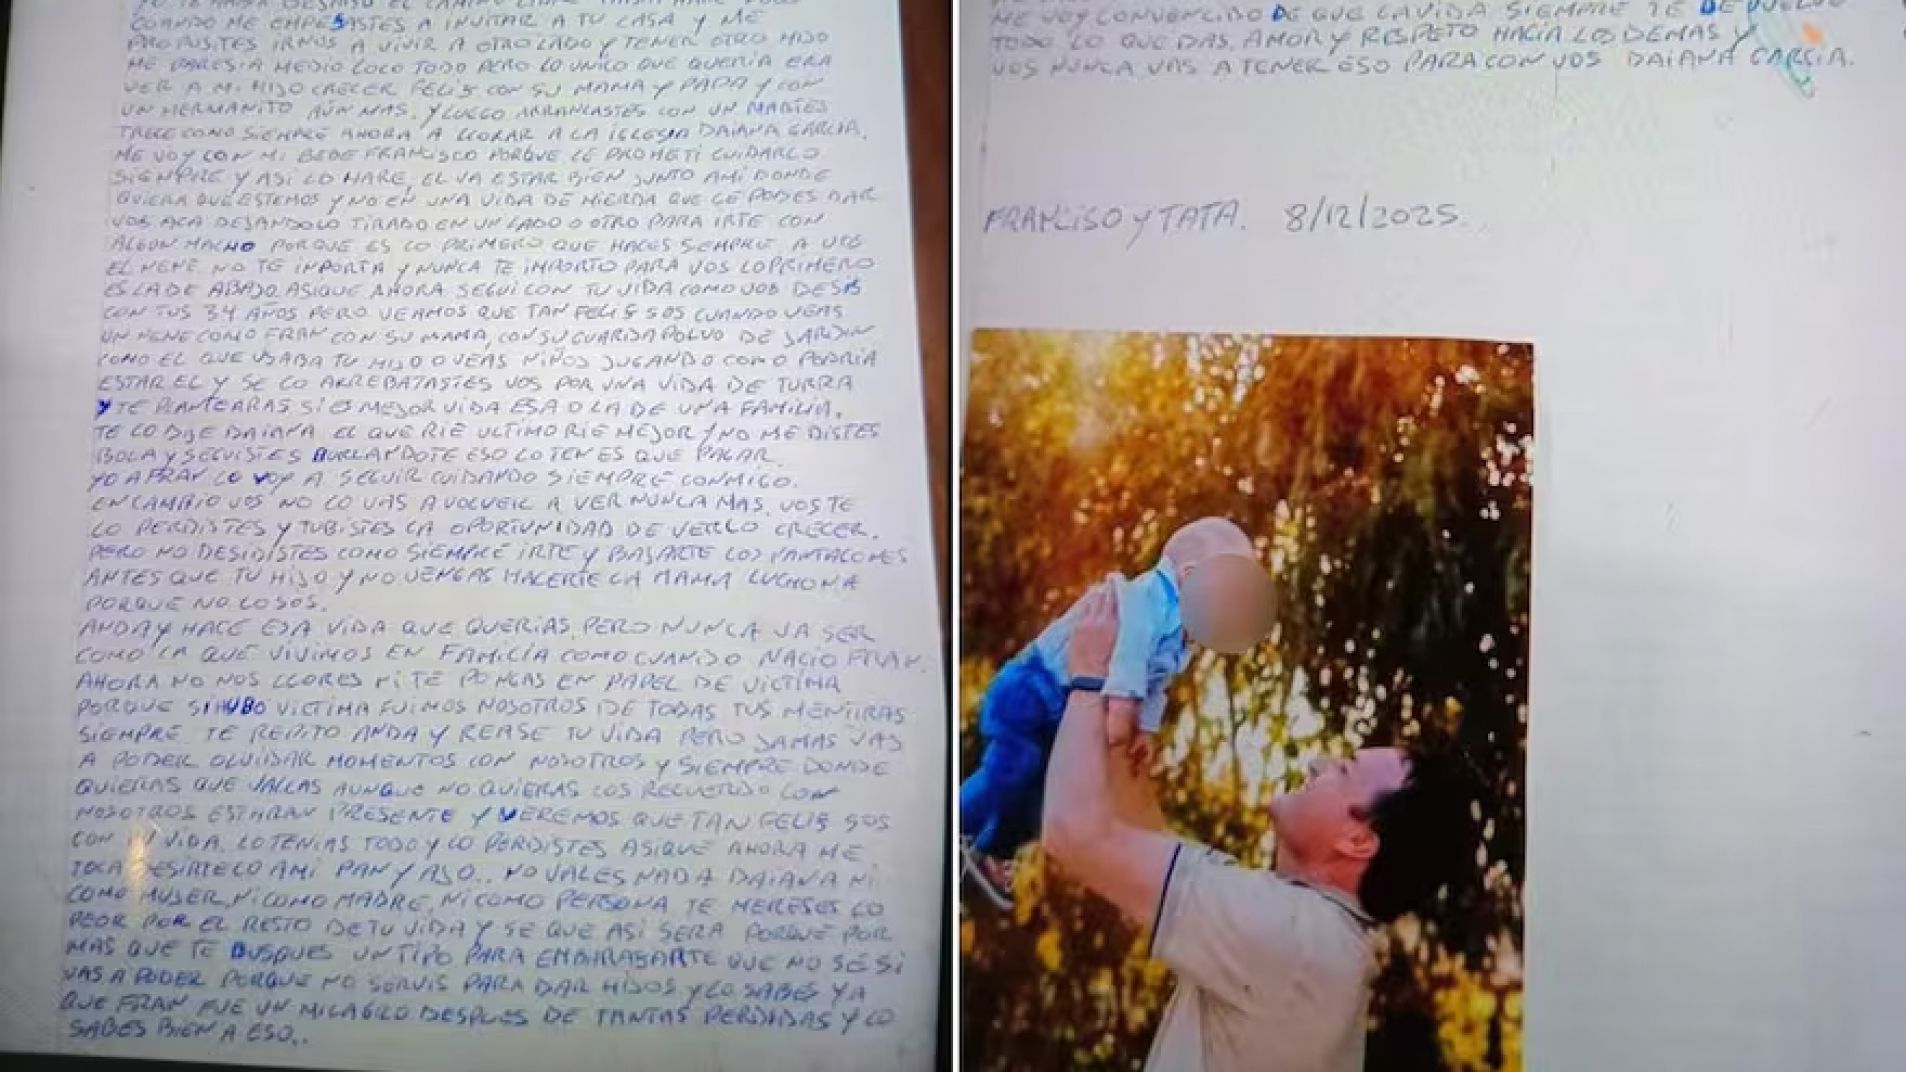 CUANDO ME EMPESISTES A INVITAR A TU CASA Y ME
PROPUSITES IRNOS A VIVIR A OTRO LADO Y TENER OTRO HIJO
ME PARESIA MEDIO LOCO TODO PERO LO UNICO QUE QUERIA ERA
VER A MI HIJO CRECER FELIS CON SU MAMA Y PAPA Y CON
UN HERMANITO AÚN MAS. Y LUEGO ARRANCASTES CON UN MARTES
TRECE COMO SIEMPRE AHORA A LLORAR A LA IGLESIA DAIANA GARCIA.
ME VOY CON MI BEBE FRANCISCO PORQUE LE PROMETI CUIDARLO
SIEMPRE Y ASI LO HARE, EL VA ESTAR BIEN JUNTO AMI DONDE
QUIERA QUE ESTEMOS Y NO EN UNA VIDA DE MIERDA QUE LE PODES DAR
VOS ACA DEJANDOLO TIRADO EN UN LADO O OTRO PARA IRTE CON
ALGUN MACHO PORQUE ES LO PRIMERO QUE HACES SIEMPRE A VOS
EL NENE NO TE INPORTA Y NUNCA TE IMPORTO PARA VOS LO PRIMERO
ES LA DE ABAJO. ASIQUE AHORA SEGUI CON TU VIDA COMO VOS DESIS
CON TUS 34 AÑOS PERO VEAMOS QUE TAN FELIS SOS CUANDO VEAS
UN NENE COMO FRAN CON SU MAMA, CON SU GUARDAPOLVO DE JARDIN
COMO EL QUE USABA TU HIJO O VEAS NIÑOS JUGANDO COMO PODRIA
ESTAR EL Y SE LO ARREBATASTES VOS POR UNA VIDA DE TURRA
Y TE PLANTEARAS SI ES MEJOR VIDA ESA O LA DE UNA FAMILIA.
TE LO DIJE DAIANA EL QUE RIE ULTIMO RIE MEJOR Y NO ME DISTES
BOLA Y SEGUISTES BURLANDOTE ESO LO TENES QUE PAGAR.
YO A FRAN LO VOY A SEGUIR CUIDANDO SIEMPRE CONMIGO.
EN CAMBIO VOS NO LO VAS A VOLVER A VER NUNCA MAS. VOS TE
LO PERDISTES Y TUBISTES LA OPORTUNIDAD DE VERLO CRECER.
PERO NO DESIDISTES COMO SIEMPRE IRTE Y BAJARTE LOS PANTALONES
ANTES QUE TU HIJO Y NO VENGAS HACERTE LA MAMA LUCHONA
PORQUE NO LO SOS.
ANDA Y HACE ESA VIDA QUE QUERIAS PERO NUNCA VA SER
COMO LA QUE VIVIMOS EN FAMILIA COMO CUANDO NACIO FRAN.
AHORA NO NOS LLORES NI TE PONGAS EN PAPEL DE VICTIMA
PORQUE SI HUBO VICTIMA FUIMOS NOSOTROS DE TODAS TUS MENTIRAS
SIEMPRE. TE REPITO ANDA Y REASE TU VIDA PERO JAMAS VAS
A PODER OLVIDAR MOMENTOS CON NOSOTROS Y SIEMPRE DONDE
QUIERAS QUE VALLAS AUNQUE NO QUIERAS LOS RECUERDO CON
NOSOTROS ESTARAN PRESENTE Y VEREMOS QUE TAN FELIS SOS
CON TU VIDA. LO TENIAS TODO Y LO PERDISTES ASIQUE AHORA ME
TOCA DESIRTELO AMI PAN Y AJO.. NO VALES NADA DAIANA NI
COMO MUJER, NI COMO MADRE, NI COMO PERSONA TE MERESES LO
PEOR POR EL RESTO DE TU VIDA Y SE QUE ASI SERA PORQUE POR
MAS QUE TE BUSQUES UN TIPO PARA EMBARASARTE QUE NO SE SI
VAS A PODER PORQUE NO SERVIS PARA DAR HIJOS Y LO SABES YA
QUE FRAN FUE UN MILAGRO DESPUES DE TANTAS PERDIDAS Y LO
SABES BIEN A ESO..
ME VOY CONVENCIDO DE QUE LA VIDA SIEMPRE TE DEVUELVE
TODO LO QUE DAS. AMOR Y RESPETO HACIA LOS DEMAS Y
VOS NUNCA VAS A TENER ESO PARA CON VOS DAIANA GARCIA.
FRANCISO Y TATA. 8/12/2025..